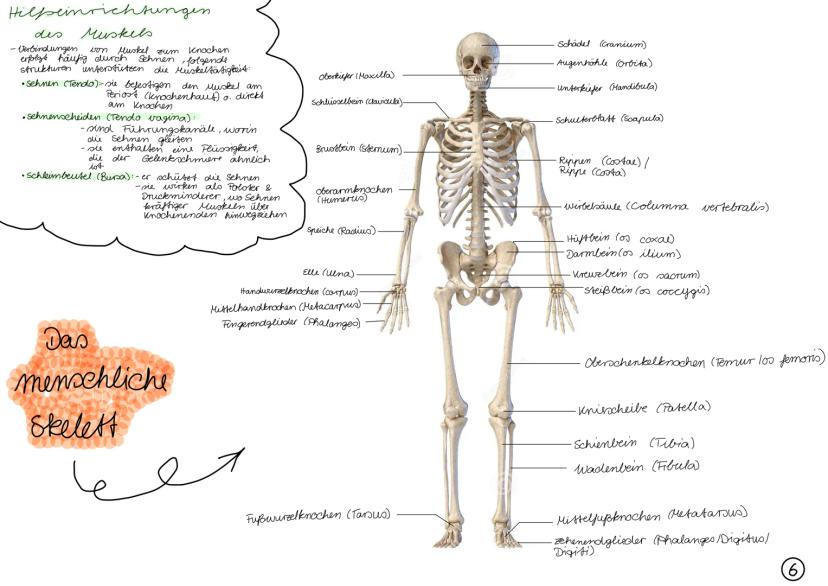 Hilfseinrichtungen
des Muskels
- Verbindungen von Muskel zum Knochen
erfolgt häufig durch Sehnen, folgende
strukturen unterstützen die Muskeltätigkeit:
• Sehnen (Tendo): - sie befestigen den Muskel am
Periost (Knochenhaut) o. direkt
am Knochen
• Sehnenscheiden (Tendo vagina):
- sind Führungskanäle, worin
die Sehnen gleiten
- sie enthalten eine Flüssigkeit,
die der Gelenkschmiere ähnlich
ist
• Schleimbeutel (Bursa): - er schützt die Sehnen
- sie wirken als Polster &
Druckminderer, wo Sehnen
kräftiger Muskeln über
Knochenenden hinwegziehen
Das
menschliche
Skelett
Oberkiefer (Maxilla)
Schlüsselbein (Clavicula)
Brustbein (Sternum)
Oberarmknochen
(Humerus)
Speiche (Radius)
Elle (Ulna)
Handwurzelknochen (Carpus)
Mittelhandknochen (Metacarpus)
Fingerendglieder (Phalanges)
Fußwurzelknochen (Tarsus)
Schädel (Cranium)
Augenhöhle (Orbita)
Unterkiefer (Mandibula)
Schulterblatt (Scapula)
Rippen (Costae) /
Rippe (Costa)
Wirbelsäule (Columna vertebralis)
Hüftbein (os coxae)
Darmbein (os ilium)
Kreuzbein (os sacrum)
Steißbein (os coccygis)
Oberschenkelknochen (Femur / os femoris)
Kniescheibe (Patella)
Schienbein (Tibia)
Wadenbein (Fibula)
Mittelfußknochen (Metatarsus)
Zehenendglieder (Phalanges/Digitus/
Digiti)
6